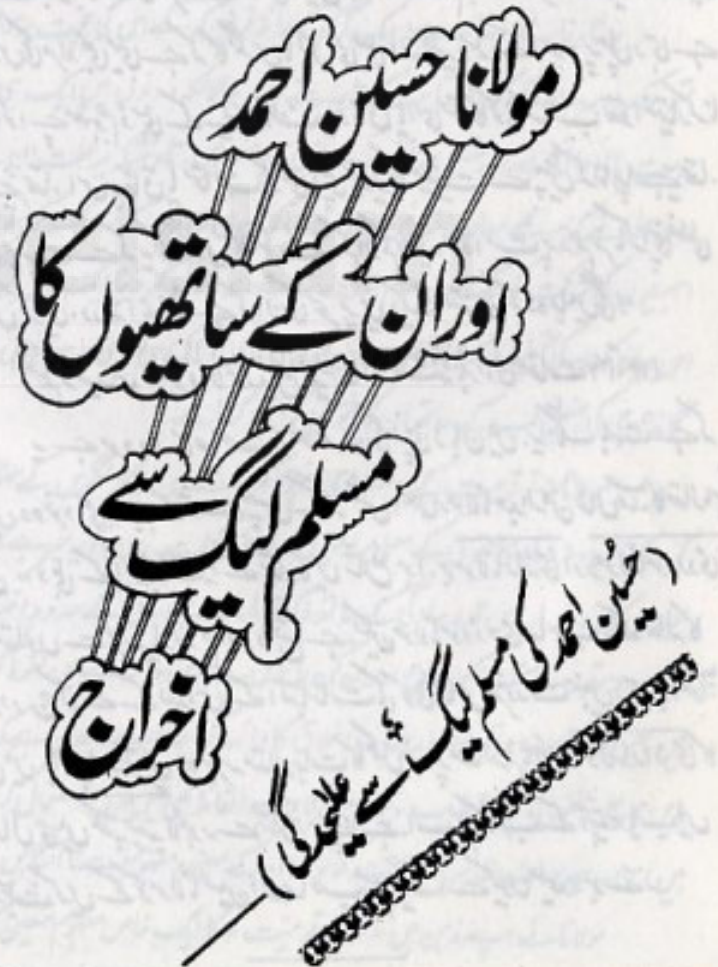 مولانا حسین احمد
اور ان کے ساتھیوں کا
مسلم لیگ سے
اخراج
(حسین احمد کی مسلم لیگ سے علیٰحدگی)